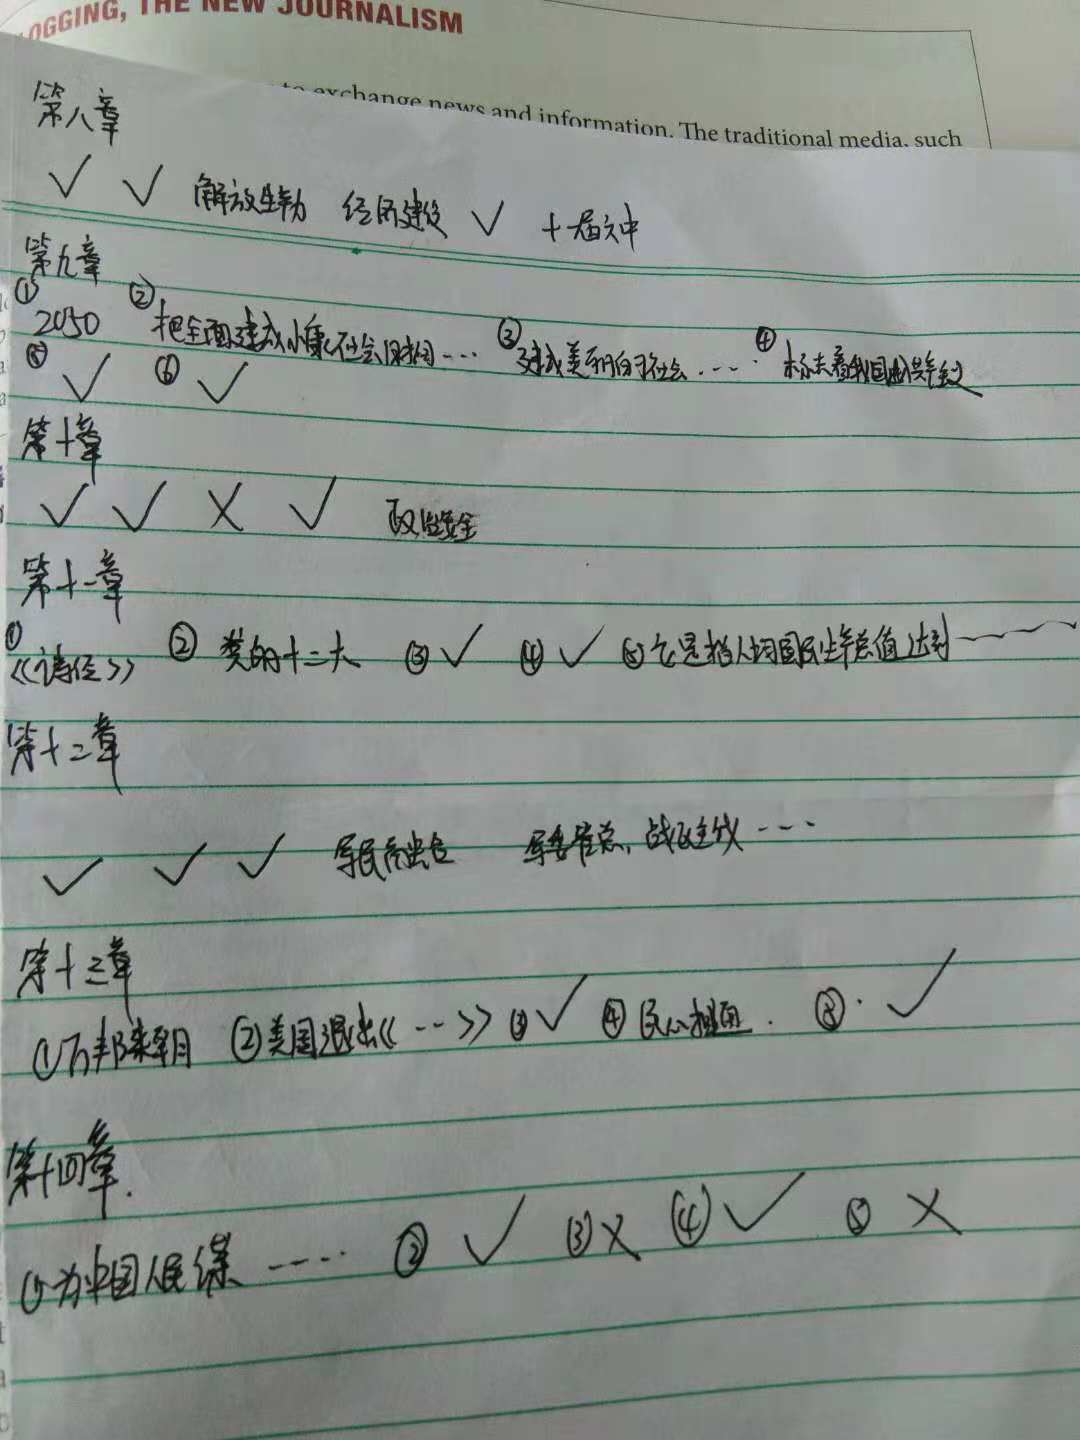 LOGGING, THE NEW JOURNALISM
to exchange news and information. The traditional media, such
第八章
✓ ✓ 解放生产力 经济建设 ✓ 十一届六中
第九章
① 2050 ② 把全面建成小康社会目标 ···· ③ 建成美丽的社会 ···· ④ 标志着我国
⑤ ✓ ⑥ ✓
第十章
✓ ✓ X ✓ 政治安全
第十一章
① 《诗经》 ② 党的十二大 ③ ✓ ④ ✓ ⑤ 它是指人均国民生产总值达到
第十二章
✓ ✓ ✓ 军委管总, 战区主战 ····
第十三章
① 万邦来朝 ② 美国退出《 ··· 》 ③ ✓ ④ 民心相通. ⑤ ✓
第十四章.
① 为中国人民谋 ····· ② ✓ ③ X ④ ✓ ⑤ X